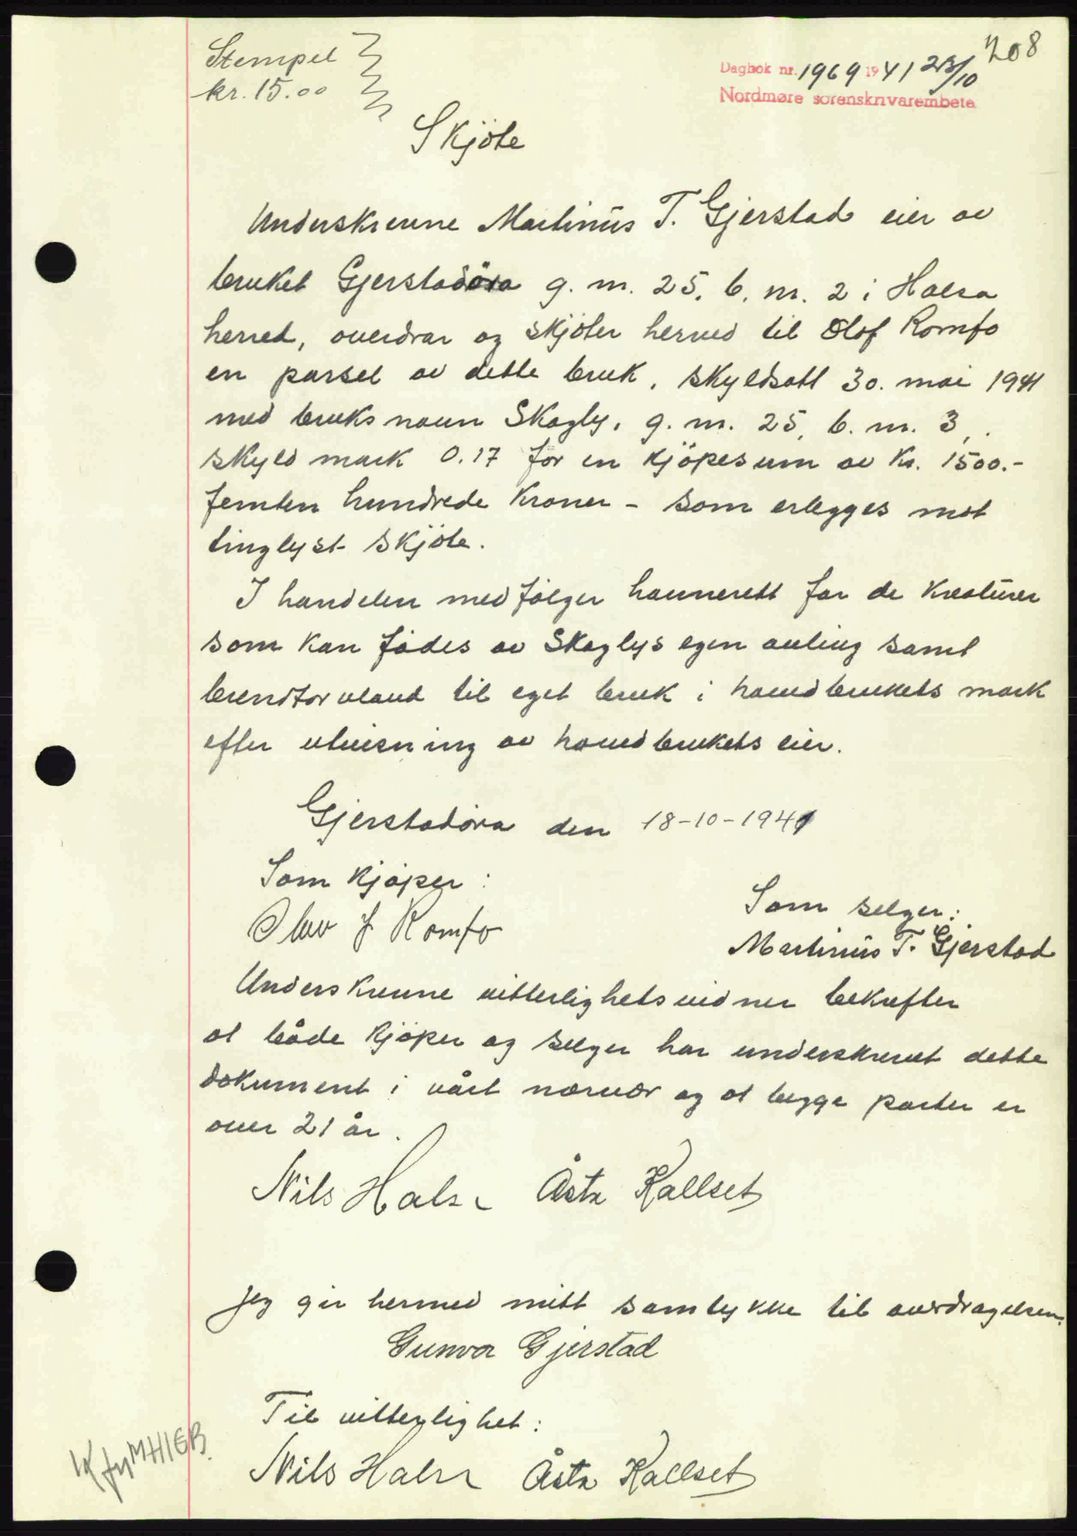 Stempel
kr. 15.00
Dagbok nr. 1969 1941 23/10
208
Nordmøre sorenskrivarembete
Skjöte
Underskrevne Martinus T. Gjerstad eier av
bruket Gjerstadöra g. nr. 25. b. nr. 2 i Halsa
herred, overdrar og skjöter herved til Olof Romfo
en parsel av dette bruk, skyldsatt 30. mai 1941
med bruksnavn Skogly, g. nr. 25, b. nr. 3,
skyld mark 0.17 for en kjöpesum av kr. 1500.-
femten hundrede kroner - som erlegges mot
tinglyst skjöte.
I handelen medfölger havnerett for de kreaturer
som kan födes av Skoglys egen avling samt
brendtorvland til eget bruk i hovedbrukets mark
efter utvisning av hovedbrukets eier.
Gjerstadöra den 18-10-1941
Som kjöper:
Olav J Romfo
Som selger:
Martinus T. Gjerstad
Underskrevne vitterlighetsvidner bekrefter
at både kjöper og selger har underskrevet dette
dokument i vårt nærvær og at begge parter er
over 21 år.
Nils Halsa Åsta Kallset
Jeg gir hermed mitt samtykke til overdragelsen.
Gunvor Gjerstad
Til vitterlighet:
Nils Halsa Åsta Kallset